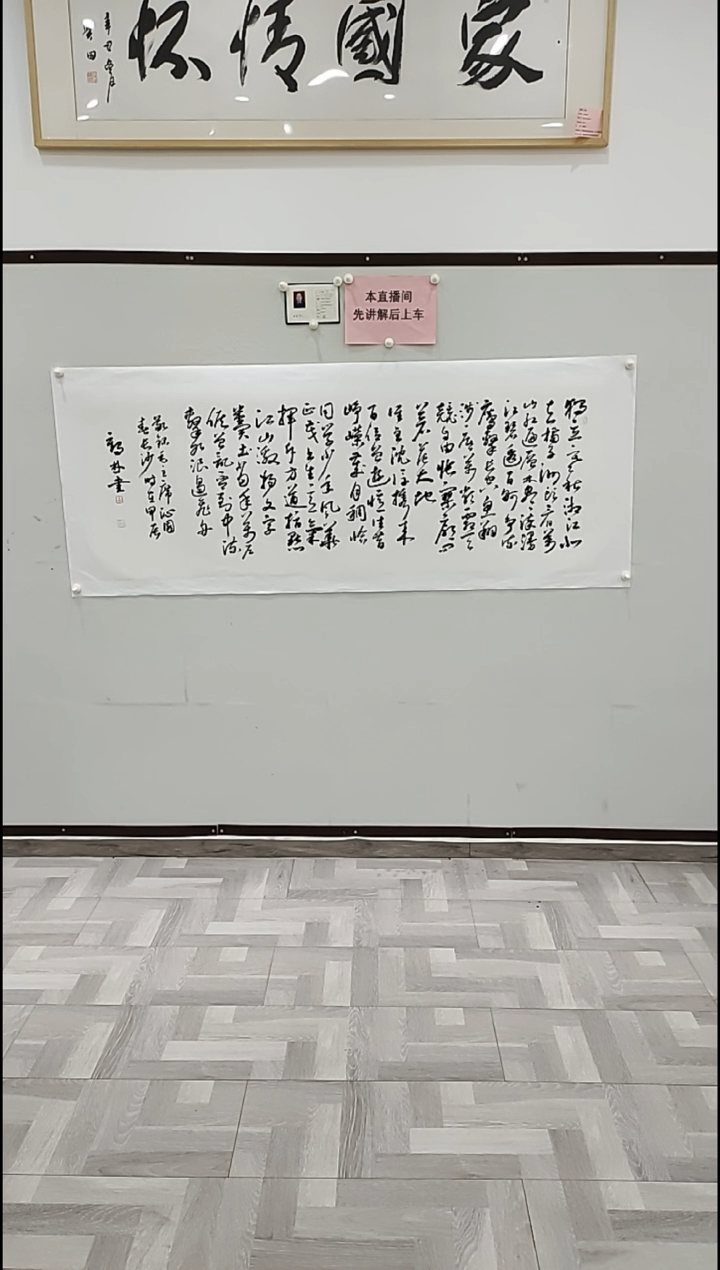 家國情怀
本直播间
先讲解后上车
獨立寒秋湘江北
去橘子洲头看萬
山红遍层林尽染漫
江碧透百舸争流
鹰擊長空鱼翔
浅底萬类霜天
競自由怅寥廓问
苍茫大地
谁主沉浮携来
百侣曾遊忆往昔
峥嵘岁月稠恰
同学少年风華
正茂书生意氣
揮斥方遒指點
江山激扬文字
粪土當年萬户
侯曾記否到中流
擊水浪遏飞舟
敬録毛主席沁園
春长沙 时在甲辰